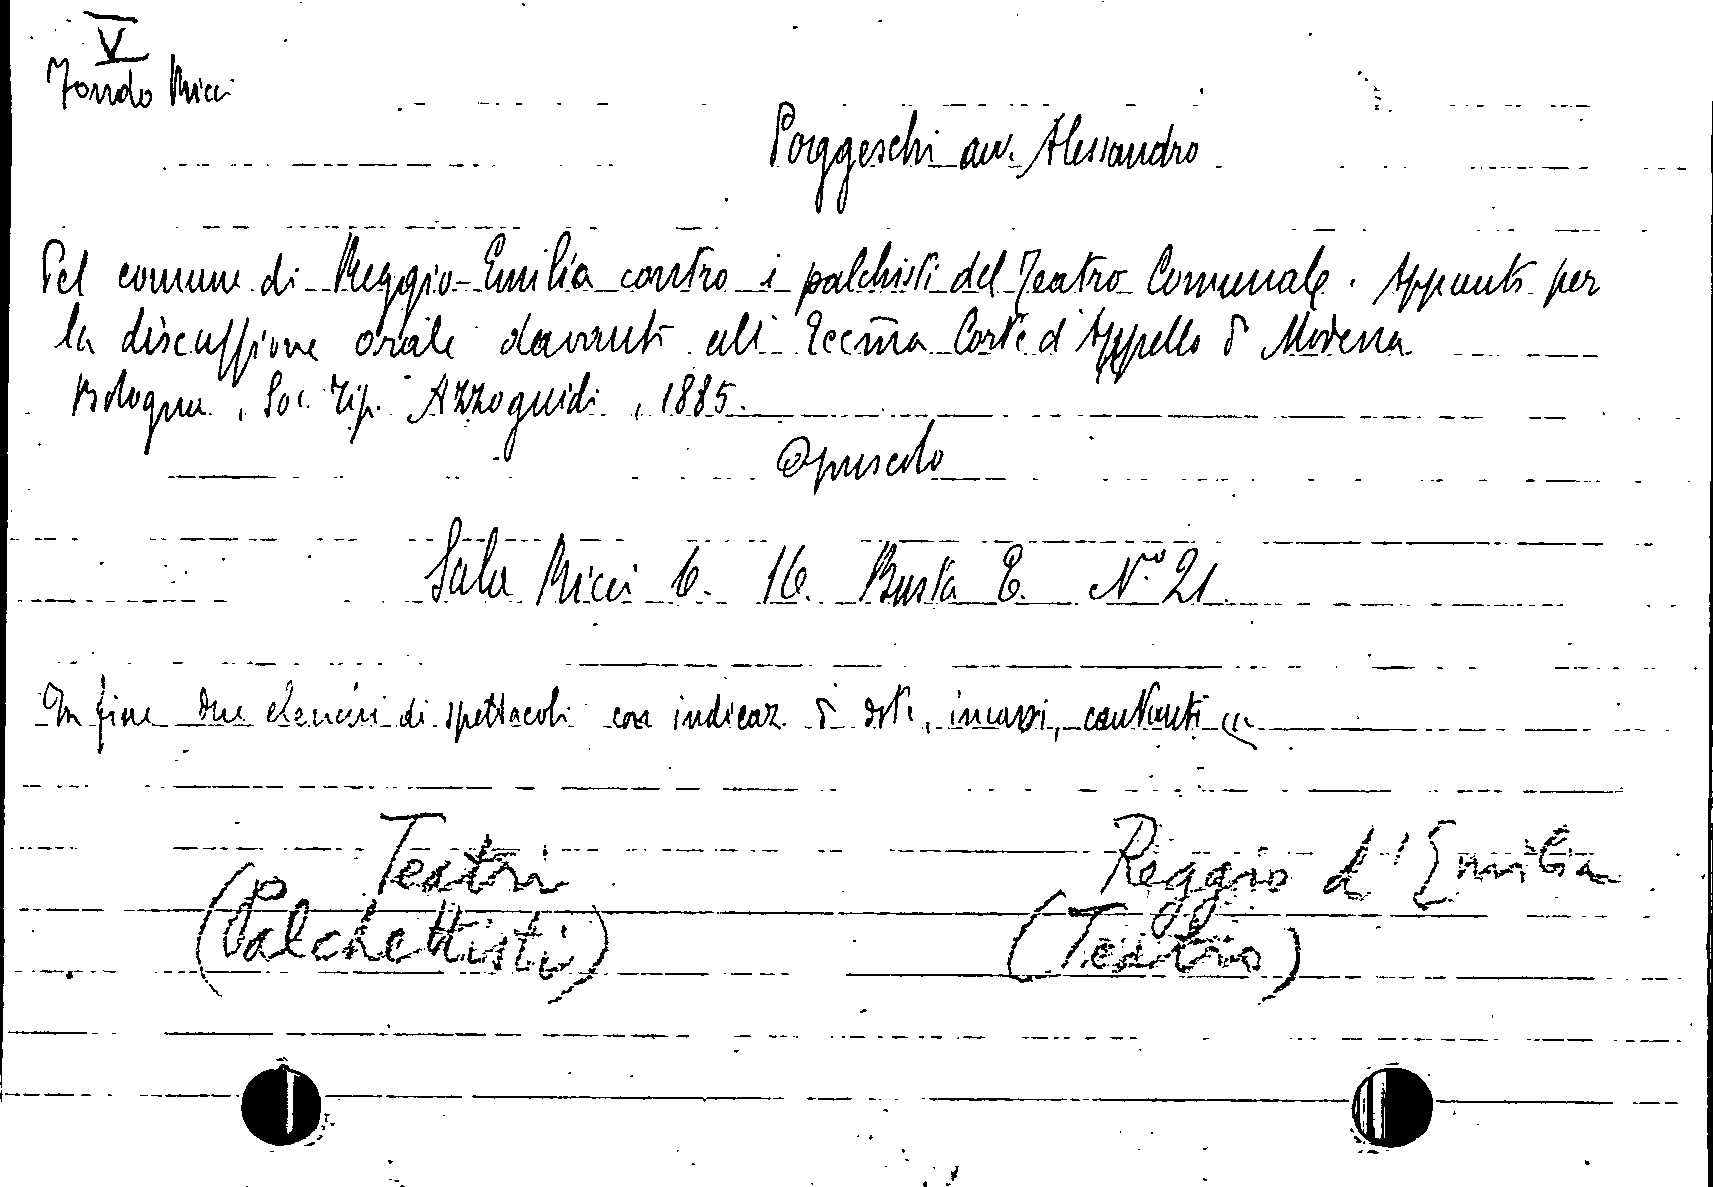 V
Fondo Ricci
Poggeschi avv. Alessandro
Pel comune di Reggio-Emilia contro i palchisti del Teatro Comunale. Appunti per
la discussione orale davanti all' Eccma Corte d'Appello di Modena
Bologna, Soc. Tip. Azzoguidi, 1885.
Opuscolo
Sala Ricci 6. 16. Busta E. No 21
In fine due elenchi di spettacoli con indicaz. di doti, incassi, cantanti
Teatri
Reggio d'Emilia
(Palchettisti)
(Teatro)